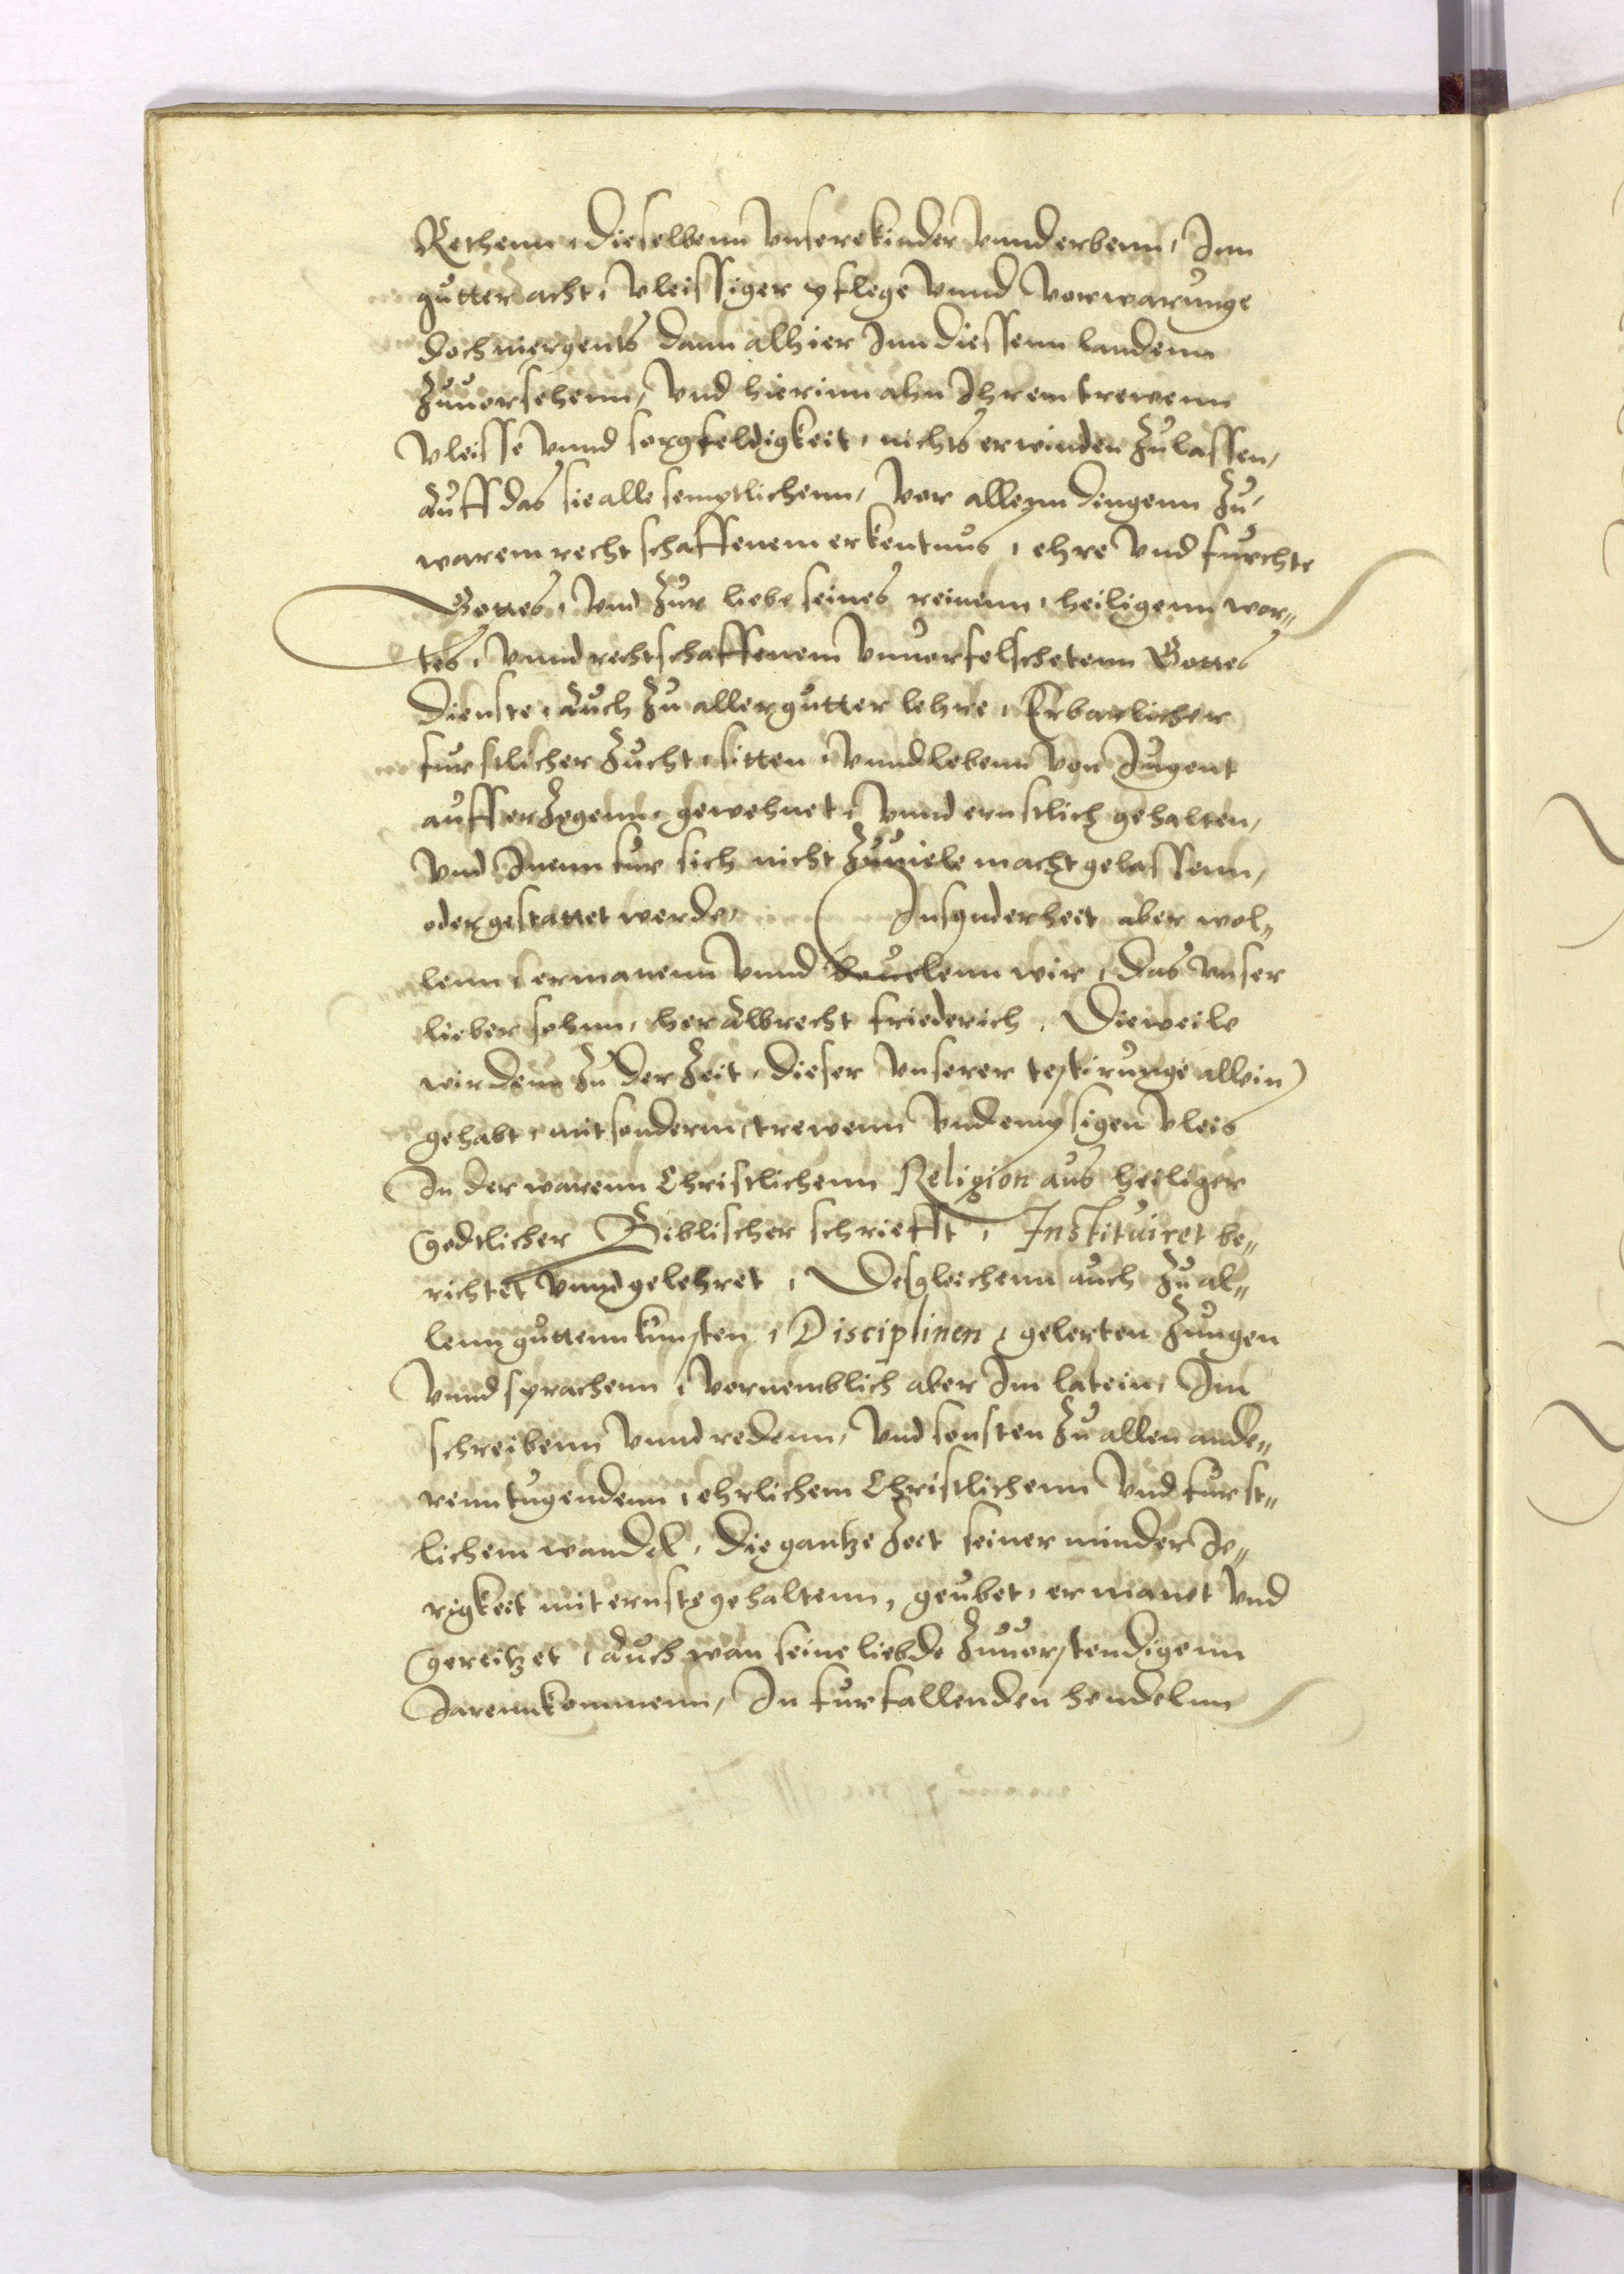 Rethenn, dieselbenn vnsere kinder vnnd erbenn, Inn
gutter acht, vleissiger pflege vnnd vorwarunge
doch niergents dann alhier Inn diessenn landenn
Zuuorsehenn, vnd hierinn ahn Ihrem trewenn
vleisse vnnd sorgfeldigkeit, nichts erwinden Zulassen,
auff das sie alle semptlichenn, vor allenn dingenn Zu
warem recht schaffenem erkentnus, ehre vnd furchte
Gottes, vnd Zur liebe seines reinenn, heiligenn wor„
tes, vnnd rechtschaffenem vnuorfelschetenn Gottes
dienste, auch Zu aller gutter lehre, Erbarlicher
furstlicher Zucht, sitten, vnnd lebenn von Jugent
aufferZogenn, gewehnet, vnnd ernstlich gehalten,
vnd Inenn fur sich nicht Zuuiele macht gelassenn,
oder gestattet werde, Insonderheit aber wol„
lenn, ermanenn vnnd beuelenn wir, das vnser
lieber sohnn, her Albrecht friederich, Dieweile
wir denn Zu der Zeit, dieser vnserer testirunge allein
gehabt, mit sonderm, trewenn vnd emsigen vleis
In der warenn Christlichenn Religion aus heiliger
Godtlicher Biblischer schriefft, Instituiret be„
richtet vnnd gelehret, Desgleichenn auch Zu al„
lenn guttenn kunsten, Disciplinen, gelerten Zungen
vnnd sprachenn, vornemblich aber Im latein, Im
schreibenn vnnd redenn, vnd sonsten Zu allen ande„
renn tugendenn, ehrlichem Christlichenn vnd furst„
lichem wandel, die gantze Zeit seiner minder Je„
rigkeit mit ernste gehaltenn, geubet, ermanet vnd
gereitzet, auch wan seine liebde Zuuorstendigenn
Jarenn kommenn, In furfallenden hendelnn